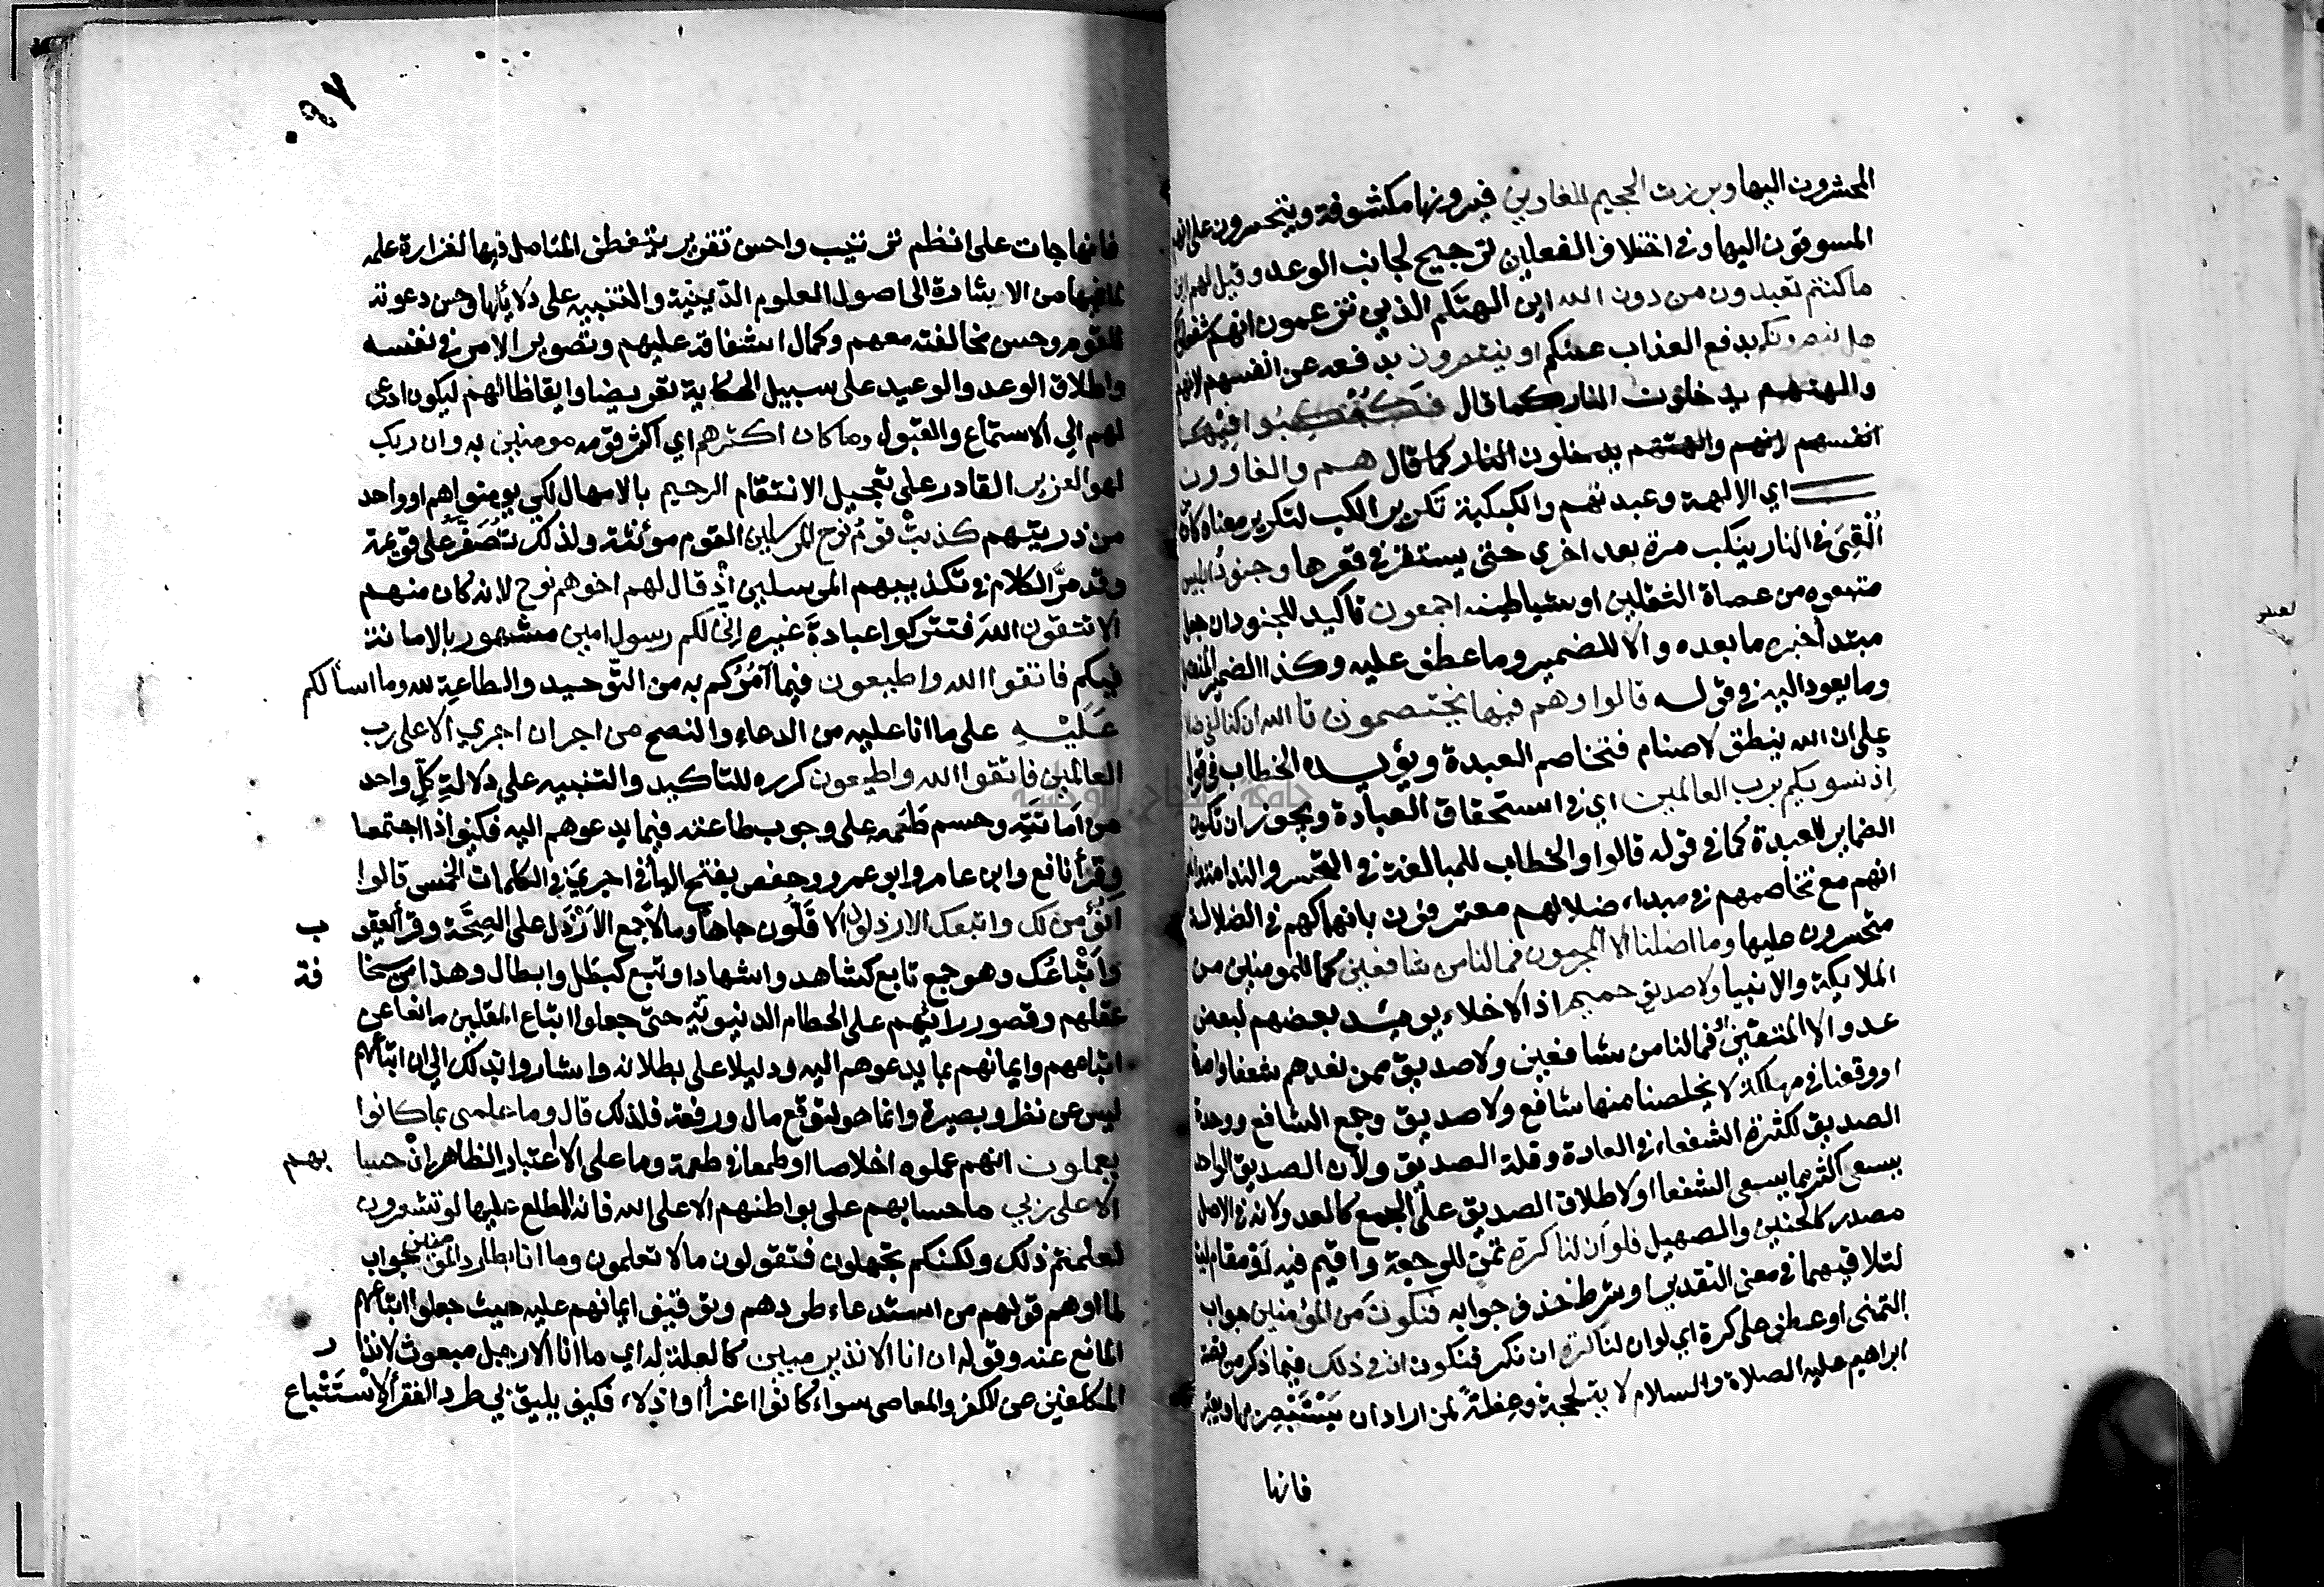 المحشرون اليها وبرزت الجحيم للغاوين فيرونها مكشوفة ويتحسرون على انهم
المسوقون اليها وفي اختلاف الفعلين ترجيح لجانب الوعد وقيل لهم اين
ما كنتم تعبدون من دون الله اين الهتكم الذين تزعمون انهم شفعاؤكم
هل ينصرونكم بدفع العذاب عنكم او ينتصرون بدفعه عن انفسهم لانهم
والهتهم يدخلون النار كما قال فكبكبوا فيها
انفسهم لانهم والهتهم يدخلون النار كما قال هم والغاوون
اي الالهة وعبدتهم والكبكبة تكرير الكب لتكرير معناه كان
القي في النار ينكب مرة بعد اخري حتى يستقر في قعرها وجنود ابليس
متبعوه من عصاة الثقلين او شياطينه اجمعون تاكيد للجنود ان جعل
مبتدأ خبره ما بعده والا للضمير وما عطف عليه وكذا الضمير المنفصل
وما يعود اليه في قوله قالوا وهم فيها يختصمون تا الله ان كنا لفي ضلا
على ان الله ينطق لاصنام فتخاصم العبدة ويؤيده الخطاب في قوله
اذ نسويكم برب العالمين اي في استحقاق العبادة ويجوز ان تكون
الضماير للعبدة كما في قوله قالوا والخطاب للمبالغة في التحسر والندامة
انهم مع تخاصمهم في مبداء ضلالهم معترفون بانهماكهم في الضلالة
متحسرون عليها وما اضلنا الا المجرمون فما لنا من شافعين كما للمومنين من
الملايكة والانبيا ولا صديق حميم اذ الاخلاء يوميذ بعضهم لبعض
عدو الا المتقين او فما لنا من شافعين ولا صديق ممن نعدهم شفعا
او وقعنا في مهلكة لا يخلصنا منها شافع ولا صديق وجمع الشافع ووحدة
الصديق لكثرة الشفعاء في العادة وقلة الصديق ولان الصديق الواحد
يسعى اكثر مما يسعى الشفعا او لاطلاق الصديق على الجمع كالعدو لانه في الاصل
مصدر كالحنين والصهيل فلو ان لنا كرة تمن للرجعة واقيم فيه لو مقام ليت
لتلاقيهما في معنى التقدير او شرط حذف جوابه فنكون من المؤمنين جواب
التمنى او عطف على كرة اي لو ان لنا كرة ان نكر فنكون ان في ذلك فيما ذكر من قصة
ابراهيم عليه الصلاة والسلام لاية لحجة وعظة لمن اراد ان يستبصر بها ويعتبر
فانها
فانها جات على انظم ترتيب واحسن تقرير يتفطن المتامل فيها لغزارة علمه
لما فيها من الاشادة الى اصول العلوم الدينية والتنبيه على دلائلها وحسن دعوته
للقوم وحسن مخالفته معهم وكمال اشفاقه عليهم وتصوير الامر في نفسه
واطلاق الوعد والوعيد على سبيل الحكاية تعريضا وايقاظا لهم ليكون ادعى
لهم الي الاستماع والقبول وما كان اكثرهم اي اكثر قومه مومنين به وان ربك
لهو العزيز القادر على تعجيل الانتقام الرحيم بالامهال لكي يومنوا هم او واحد
من ذريتهم كذبت قوم نوح المرسلين القوم مؤنثة ولذلك تصغر على قويمة
وقد مر الكلام في تكذيبهم المرسلين اذ قال لهم اخوهم نوح لانه كان منهم
الا تتقون الله فتتركوا عبادة غيره اني لكم رسول امين مشهور بالامانة
فيكم فاتقوا الله واطيعون فيما آمركم به من التوحيد والطاعة لله وما اسألكم
عليه على ما انا عليه من الدعاء والنصح من اجر ان اجري الا على رب
العالمين فاتقوا الله واطيعون كرره للتاكيد والتنبيه على دلالة كل واحد
من امانته وحسم طمعه على وجوب طاعته فيما يدعوهم اليه فكيف اذا اجتمعا
وقرأ نافع وابن عامر وابو عمرو وحفص بفتح اليا في اجري في الكلمات الخمس قالوا
انؤمن لك واتبعك الارذلون الا قلون جاها وما لا جمع الارذل على الصحة وقرأ يعقو ب
واتباعك وهو جمع تابع كشاهد واشهاد او تبع كبطل وابطال وهذا من سخا فة
عقلهم وقصور رايهم على الحطام الدنيوية حتى جعلوا اتباع المقلين مانعا عن
اتباعهم وايمانهم بما يدعوهم اليه ودليلا على بطلانه واشاروا بذلك الى ان اتباعهم
ليس عن نظر وبصيرة وانما هو لتوقع مال ورفعة فلذلك قال وما علمى بما كانوا
يعملون انهم عملوه اخلاصا او طمعا في طعمة وما على الا اعتبار الظاهر ان حسا بهم
الا على ربي ما حسابهم على بواطنهم الا على الله فانه المطلع عليها لو تشعرون
لعلمتم ذلك ولكنكم تجهلون فتقولون ما لا تعلمون وما انا بطارد المؤمنين جواب
لما اوهم قولهم من استدعاء طردهم وتوقيف ايمانهم عليه حيث جعلوا اتباعهم
المانع عنه وقوله ان انا الا نذير مبين كالعلة له اي ما انا الا رجل مبعوث لانذا ر
المكلفين عن الكفر والمعاصى سواء كانوا اعزأ او اذلاء فكيف يليق بي طرد الفقرأ لاستتباع